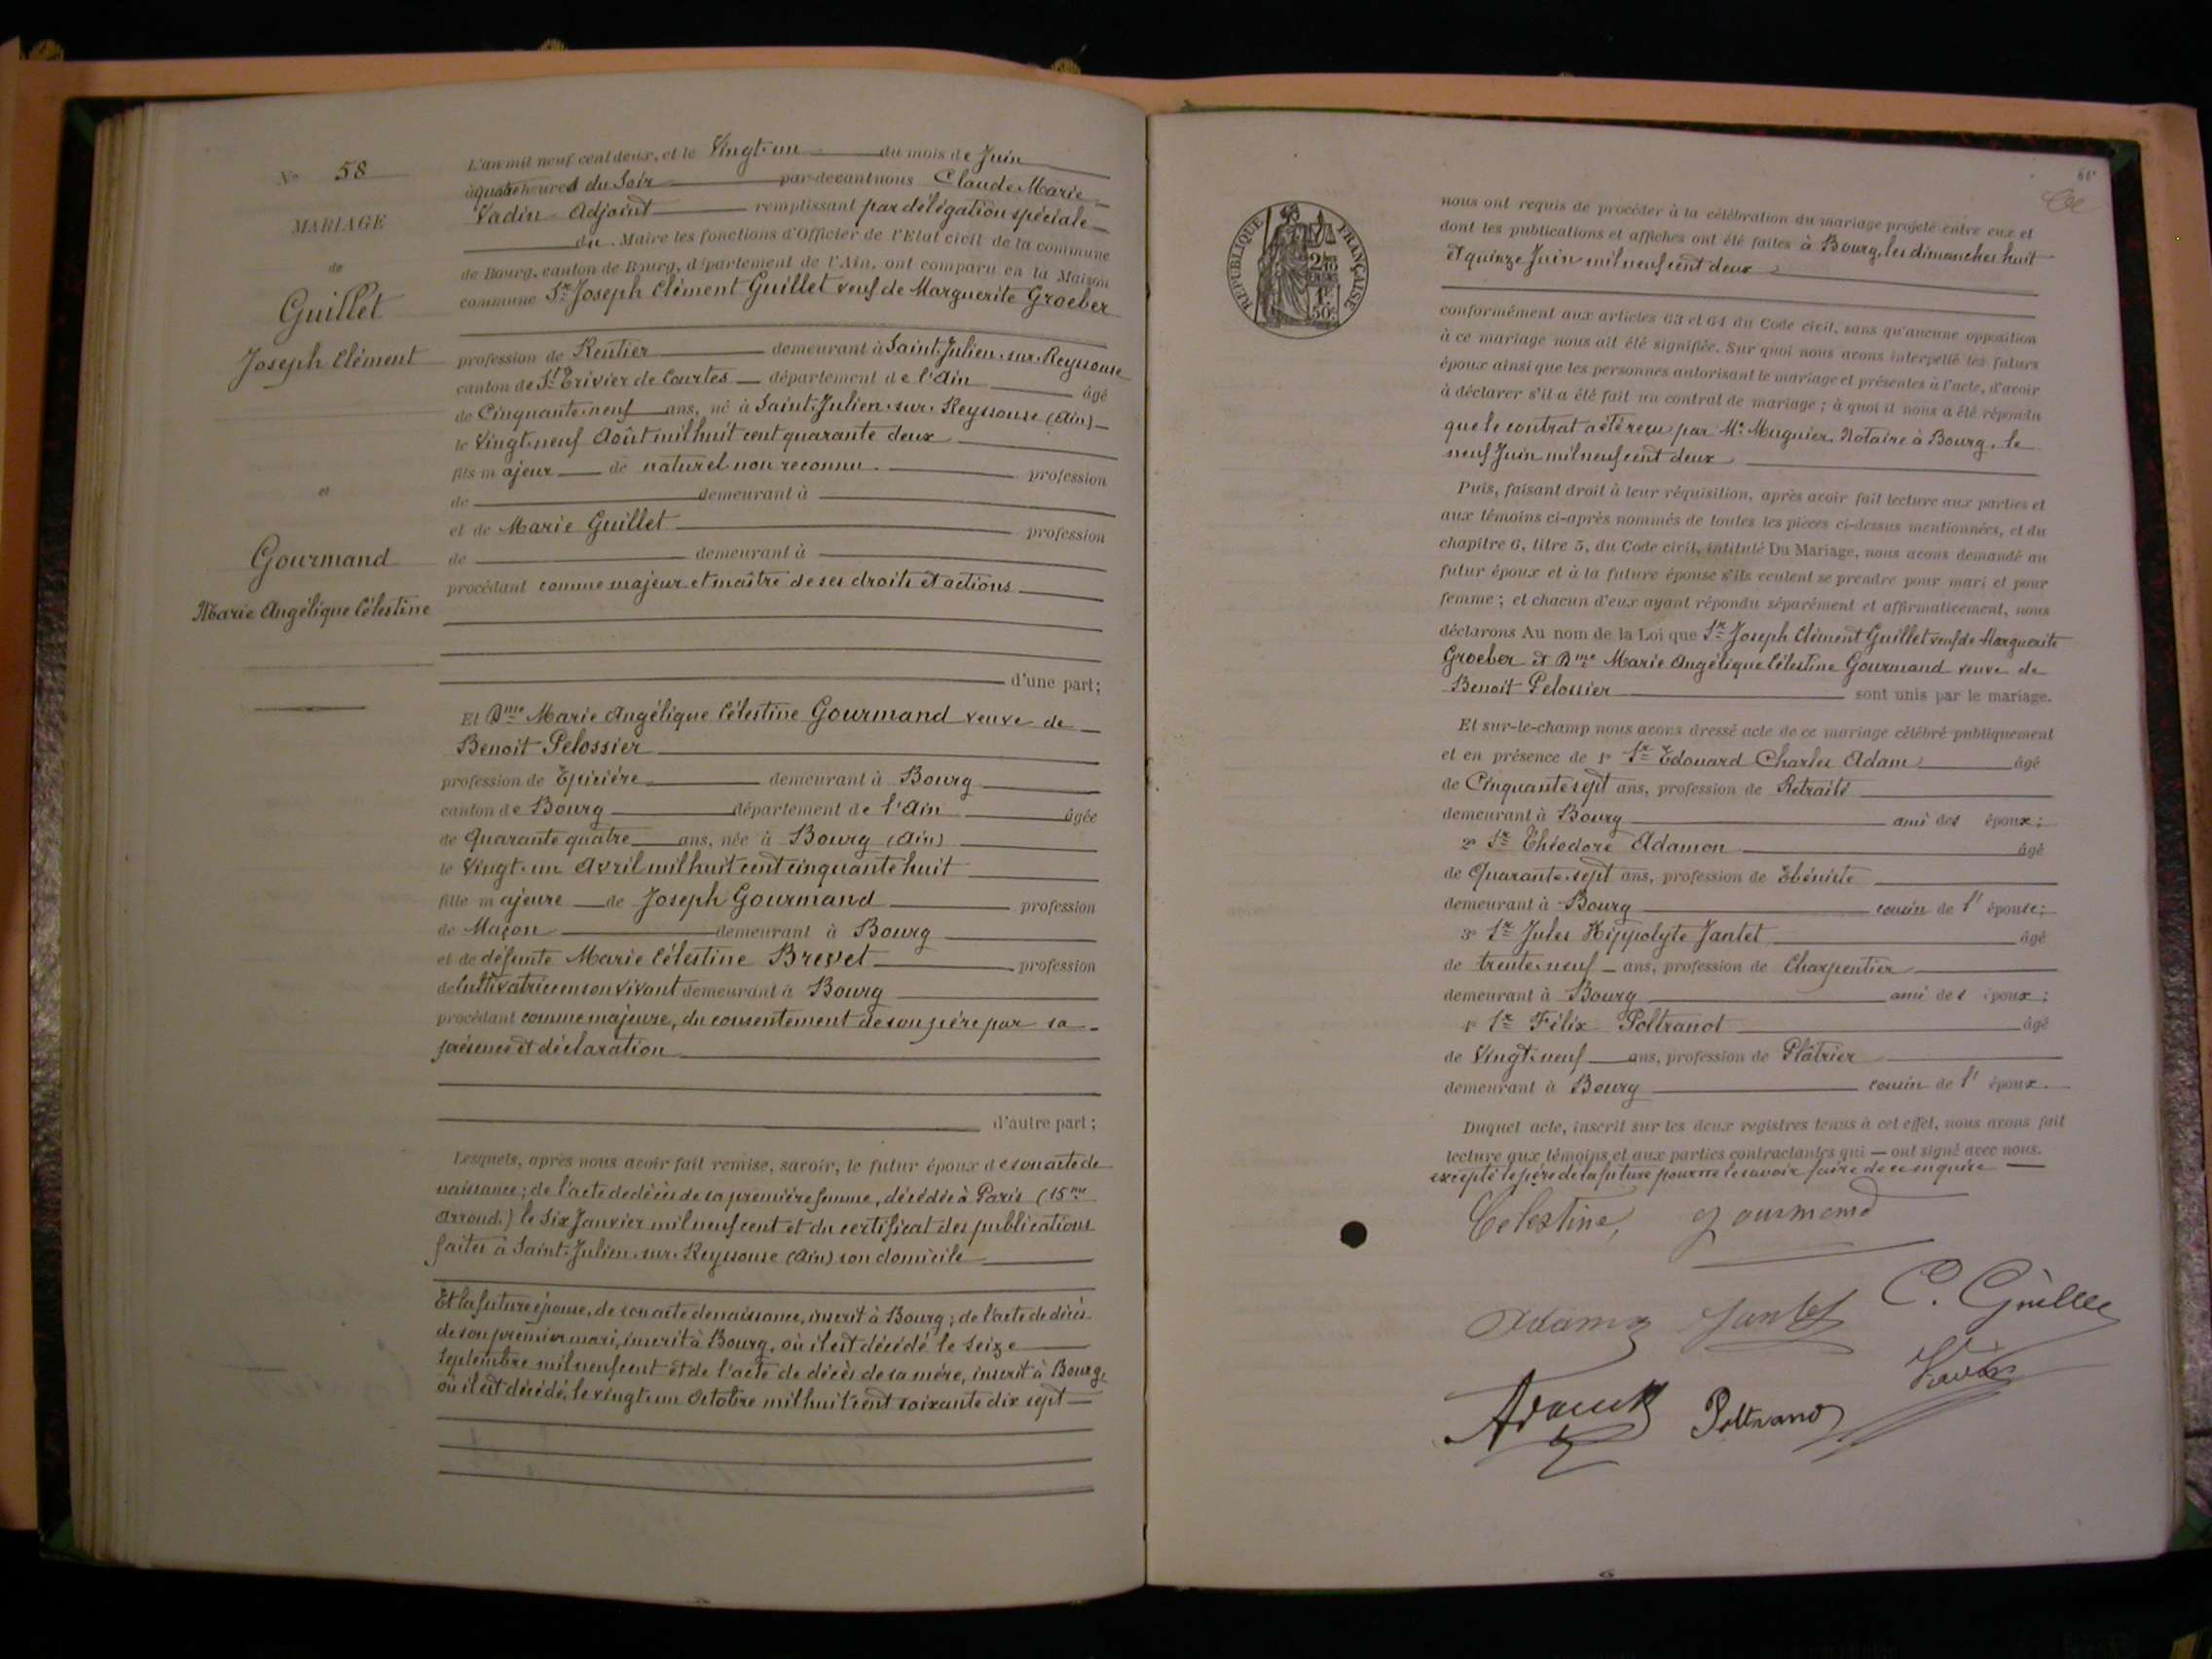 N° 58
MARIAGE
de
Guillet
Joseph Clément
et
Gourmand
Marie Angélique Célestine
L'an mil neuf cent deux, et le Vingt-un du mois de Juin
à quatre heures du Soir par-devant nous Claude Marie
Vadin Adjoint remplissant par délégation spéciale
du Maire les fonctions d'Officier de l'Etat civil de la commune
de Bourg, canton de Bourg, département de l'Ain, ont comparu en la Maison
commune Sr Joseph Clément Guillet veuf de Marguerite Groeber
profession de Rentier demeurant à Saint-Julien-sur-Reyssouse
canton de St Trivier de Courtes département de l'Ain âgé
de Cinquante-neuf ans, né à Saint-Julien-sur-Reyssouse (Ain)
le Vingt-neuf Août mil huit cent quarante deux
fils majeur de naturel non reconnu profession
de demeurant à
et de Marie Guillet profession
de demeurant à
procédant comme majeur et maître de ses droits et actions
d'une part;
Et Dme Marie Angélique Célestine Gourmand veuve de
Benoit Pelossier
profession de Epicière demeurant à Bourg
canton de Bourg département de l'Ain âgée
de Quarante quatre ans, née à Bourg (Ain)
le Vingt-un Avril mil huit cent cinquante huit
fille majeure de Joseph Gourmand profession
de Maçon demeurant à Bourg
et de défunte Marie Célestine Brevet profession
de Cultivatrice en son vivant demeurant à Bourg
procédant comme majeure, du consentement de son père par sa
présence et déclaration
d'autre part;
Lesquels, après nous avoir fait remise, savoir, le futur époux de son acte de
naissance; de l'acte de décès de sa première femme, décédée à Paris (15me
arrond.) le Six Janvier mil neuf cent et du certificat des publications
faites à Saint-Julien-sur-Reyssouse (Ain) son domicile
Et la future épouse, de son acte de naissance, inscrit à Bourg; de l'acte de décès
de son premier mari, inscrit à Bourg, où il est décédé le Seize
Septembre mil neuf cent et de l'acte de décès de sa mère, inscrit à Bourg,
où il est décédé, le vingt-un Octobre mil huit cent soixante dix sept
RÉPUBLIQUE FRANÇAISE
nous ont requis de procéder à la célébration du mariage projeté entre eux et
dont les publications et affiches ont été faites à Bourg, les dimanches huit
et quinze Juin mil neuf cent deux
conformément aux articles 63 et 64 du Code civil, sans qu'aucune opposition
à ce mariage nous ait été signifiée. Sur quoi nous avons interpellé les futurs
époux ainsi que les personnes autorisant le mariage et présentes à l'acte, d'avoir
à déclarer s'il a été fait un contrat de mariage; à quoi il nous a été répondu
que le contrat a été reçu par Me Mugnier, Notaire à Bourg, le
neuf Juin mil neuf cent deux
Puis, faisant droit à leur réquisition, après avoir fait lecture aux parties et
aux témoins ci-après nommés de toutes les pièces ci-dessus mentionnées, et du
chapitre 6, titre 5, du Code civil, intitulé Du Mariage, nous avons demandé au
futur époux et à la future épouse s'ils veulent se prendre pour mari et pour
femme; et chacun d'eux ayant répondu séparément et affirmativement, nous
déclarons Au nom de la Loi que Sr Joseph Clément Guillet veuf de Marguerite
Groeber et Dme Marie Angélique Célestine Gourmand veuve de
Benoit Pelossier sont unis par le mariage.
Et sur-le-champ nous avons dressé acte de ce mariage célébré publiquement
et en présence de 1° Sr Edouard Charles Adam âgé
de Cinquante sept ans, profession de Retraité
demeurant à Bourg ami des époux;
2° Sr Théodore Adamon âgé
de Quarante-sept ans, profession de Ebéniste
demeurant à Bourg cousin de l'épouse;
3° Sr Jules Hippolyte Jantet âgé
de trente-neuf ans, profession de Charpentier
demeurant à Bourg ami des époux;
4° Sr Félix Poltranot âgé
de Vingt-neuf ans, profession de Plâtrier
demeurant à Bourg cousin de l'époux.
Duquel acte, inscrit sur les deux registres tenus à cet effet, nous avons fait
lecture aux témoins et aux parties contractantes qui ont signé avec nous.
excepté le père de la future pour ne le savoir faire de ce enquise
Celestine, gourmand
Adam Jantet C. Guillet
Vadin
Poltranot